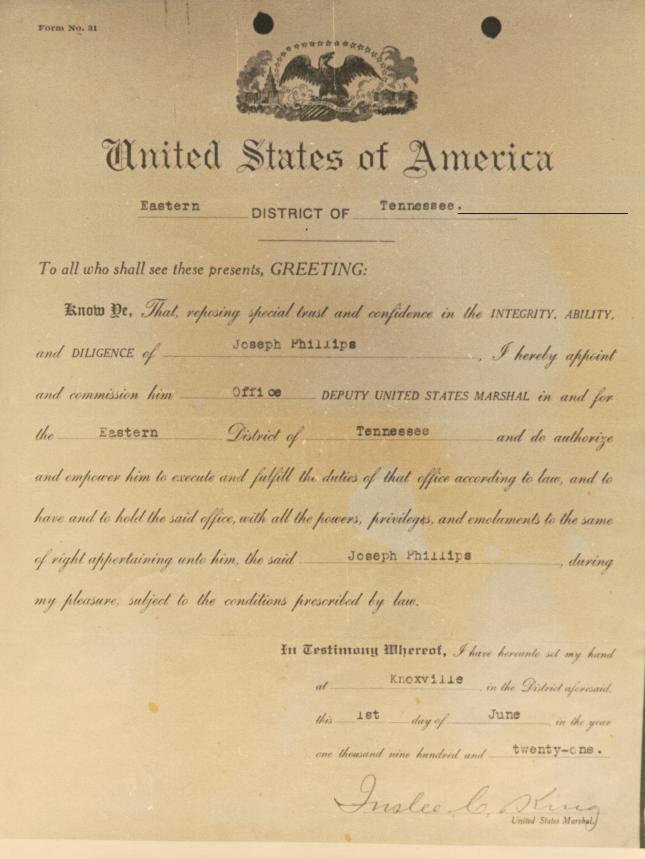 Form No. 31
United States of America
Eastern DISTRICT OF Tennessee.
To all who shall see these presents, GREETING:
Know Ye, That, reposing special trust and confidence in the INTEGRITY, ABILITY,
and DILIGENCE of Joseph Phillips, I hereby appoint
and commission him Office DEPUTY UNITED STATES MARSHAL in and for
the Eastern District of Tennessee and do authorize
and empower him to execute and fulfill the duties of that office according to law, and to
have and to hold the said office, with all the powers, privileges, and emoluments to the same
of right appertaining unto him, the said Joseph Phillips, during
my pleasure, subject to the conditions prescribed by law.
In Testimony Whereof, I have hereunto set my hand
at Knoxville, in the District aforesaid,
this 1st day of June, in the year
one thousand nine hundred and twenty-one.
Inslee C. King
United States Marshal.